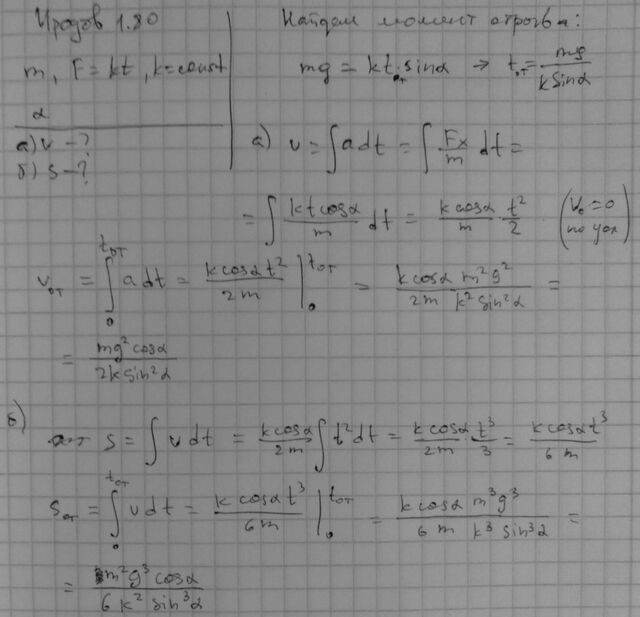 Иродов 1.80
m, F = kt, k = const
α
а) v - ?
б) s - ?
Найдем момент отрыва:
mg = kt_от·sinα → t_от = mg/(k sinα)
а) v = ∫a dt = ∫ Fx/m dt =
= ∫ (kt cosα)/m dt = (k cosα)/m · t²/2 (v₀ = 0 по усл)
v_от = ∫₀^{t_от} a dt = (k cosα t²)/(2m) |₀^{t_от} = (k cosα)/(2m) · (m²g²)/(k² sin²α) =
= (mg² cosα)/(2k sin²α)
б)
s = ∫ v dt = (k cosα)/(2m) ∫ t² dt = (k cosα)/(2m) · t³/3 = (k cosα t³)/(6m)
s_от = ∫₀^{t_от} v dt = (k cosα t³)/(6m) |₀^{t_от} = (k cosα)/(6m) · (m³g³)/(k³ sin³α) =
= (m²g³ cosα)/(6k² sin³α)